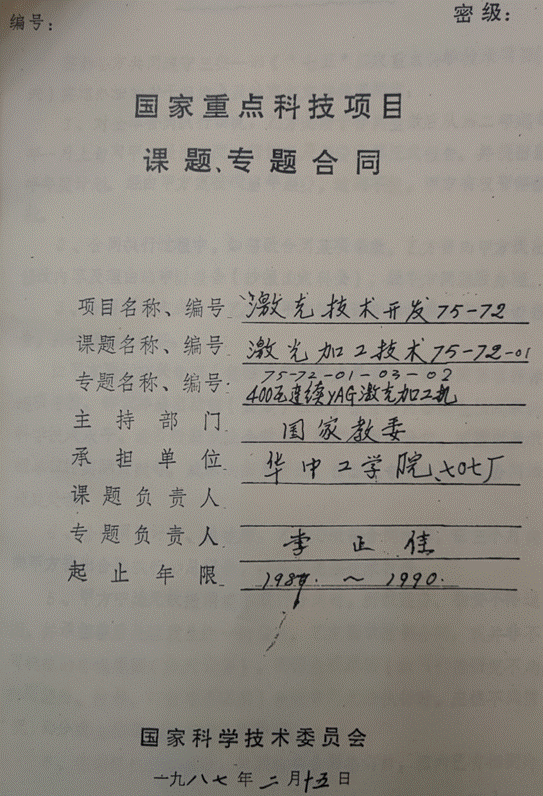 编号:
密级:
国家重点科技项目
课题、专题合同
项目名称、编号 激光技术开发75-72
课题名称、编号 激光加工技术75-72-01
75-72-01-03-02
专题名称、编号: 400瓦连续YAG激光加工机
主持部门 国家教委
承担单位 华中工学院、七0七厂
课题负责人
专题负责人 李正佳
起止年限 ~ 1990.
国家科学技术委员会
一九八七年二月十五日